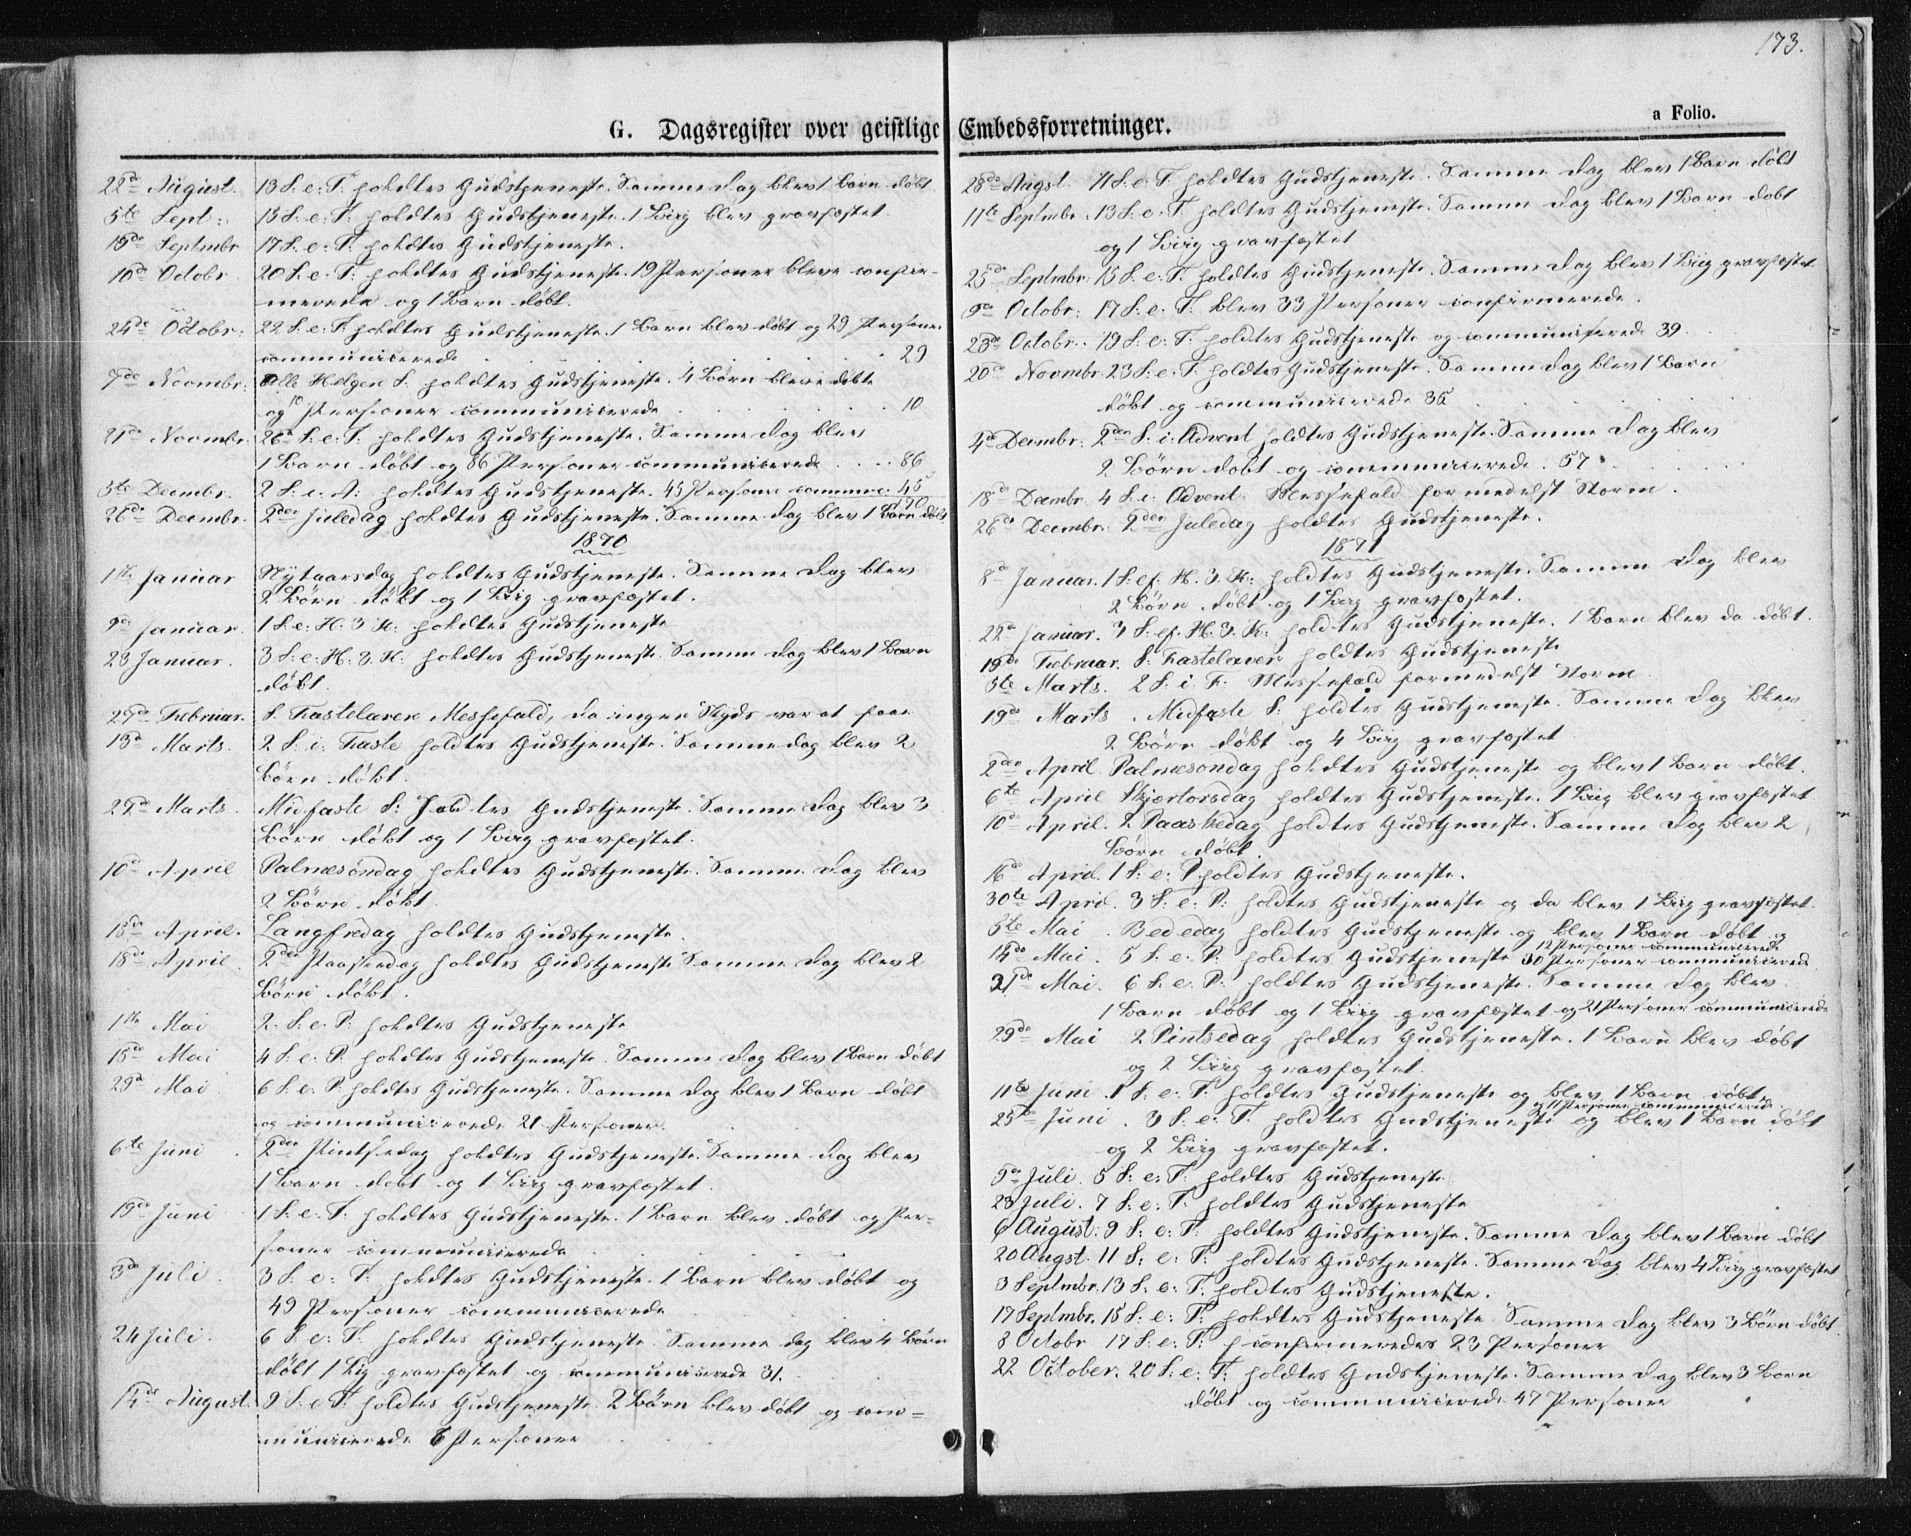 173.
a Folio.
G. Dagsregister over geistlige Embedsforretninger.
22de August. 13 S. e. T. holdtes Gudstjeneste. Samme Dag blev 1 Barn døbt
5te Sept: 15 S. e. T. holdtes Gudstjeneste. 1 Liig blev gravfæstet
19de Septmbr 17 S. e. T. holdtes Gudstjeneste.
10de Octobr 20 S. e. T. holdtes Gudstjeneste. 19 Personer bleve confir-
merede og 1 Barn døbt.
24de Octobr: 22 S. e. T. holdtes Gudstjeneste. 1 Barn blev døbt og 29 Personer
communicerede . . . 29
7de Novmbr: Alle Helgen S. holdtes Gudstjeneste. 4 Børn bleve døbte
og 10 Personer communicerede . . . 10
21de Novmbr. 26de S. e. T. holdtes Gudstjeneste. Samme Dag blev
1 Barn døbt og 86 Personer communicerede . . . 86
5te Decmbr. 2 S. i. A: holdtes Gudstjeneste. 45 Personer commun: 45
26de Decmbr. 2den Juledag holdtes Gudstjeneste. Samme Dag blev 1 Barn døbt
1870
1ste Januar Nytaarsdag holdtes Gudstjeneste. Samme Dag blev
2 Børn døbt og 1 Liig gravfæstet.
9de Januar. 1 S. e. H. 3 K: holdtes Gudstjeneste
23 Januar. 3 S. e. H. 3. K: holdtes Gudstjeneste. Samme Dag blev 1 Barn
døbt.
27de Februar. S. Fastelaven Messefald, da ingen Skyds var at faae
13de Marts. 2 S. i. Faste holdtes Gudstjeneste. Samme Dag blev 2
Børn døbt.
27de Marts. Midfaste S: holdtes Gudstjeneste. Samme Dag blev 3
Børn døbt og 1 Liig gravfæstet.
10de April Palmesøndag holdtes Gudstjeneste. Samme Dag blev
2 Børn døbt.
15de April. Langfredag holdtes Gudstjeneste.
18de April. 2den Paaskedag holdtes Gudstjeneste Samme Dag blev 2
Børn døbt.
1ste Mai 2. S. e. P. holdtes Gudstjeneste
15de Mai 4 S. e. P. holdtes Gudstjeneste. Samme Dag blev 1 Barn døbt
29de Mai 6 S. e. P. holdtes Gudstjeneste. Samme Dag blev 1 Barn døbt
og communicerede 21 Personer.
6te Juni 2den Pintsedag holdtes Gudstjeneste. Samme Dag blev
1 Barn døbt og 1 Liig gravfæstet.
19de Juni 1 S. e. T. holdtes Gudstjeneste. 1 Barn blev døbt og Per-
soner communicerede
3de Juli. 3 S. e. T. holdtes Gudstjeneste. 1 Barn blev døbt og
49 Personer communicerede
24 Juli. 6 S. e. T. holdtes Gudstjeneste. Samme Dag blev 4 Børn
døbt 1 Lig gravfæstet og communicerede 31.
14de August. 9 S. e. T. holdtes Gudstjeneste. 2 Børn blev døbt og com-
municerede 8 Personer
28de Augst. 11 S. e. T. holdtes Gudstjeneste. Samme Dag blev 1 Barn døbt
11te Septmbr. 13 S. e. T. holdtes Gudstjeneste. Samme Dag blev 1 Barn døbt
og 1 Liig gravfæstet
25de Septmbr. 15 S. e. T. holdtes Gudstjeneste. Samme Dag blev 1 Liig gravfæstet
9de Octobr: 17 S. e. T. blev 33 Personer confirmerede.
23de Octobr. 19 S. e. T. holdtes Gudstjeneste og communicerede 39.
20de Novmbr. 23 S. e. T. holdtes Gudstjeneste. Samme Dag blev 1 Barn
døbt og communicerede 36
4de Decmbr: 2den S. i. Advent holdtes Gudstjeneste. Samme Dag blev
2 Børn døbt og communicerede. 57
18de Decmbr. 4 S. i. Advent. Messefald formedelst Storm.
26de Decmbr. 2den Juledag holdtes Gudstjeneste.
1871
8de Januar. 1 S. ef. H. 3. K: holdtes Gudstjeneste. Samme Dag blev
2 Børn døbt og 1 Liig gravfæstet.
22de Januar. 3 S. ef. H. 3. K: holdtes Gudstjeneste. 1 Barn blev da døbt.
19de Februar. S. Fastelaven holdtes Gudstjeneste
5te Marts. 2 S. i. F. Messefald formedelst Storm
19de Marts. Midfaste S. holdtes Gudstjeneste. Samme Dag blev
2 Børn døbt og 4 Liig gravfæstet
2den April. Palmesøndag holdtes Gudstjeneste og blev 1 Barn døbt.
6te April Skjærtorsdag holdtes Gudstjeneste. 1 Liig blev gravfæstet
10de April. 2 Paaskedag holdtes Gudstjeneste. Samme Dag blev 2
Børn døbt.
16de April. 1 S. e. P. holdtes Gudstjeneste.
30te April. 3 S. e. P. holdtes Gudstjeneste og da blev 1 Liig gravfæstet.
5te Mai. Bededag holdtes Gudstjeneste og blev 1 Barn døbt og
12 Personer communicerede
14de Mai. 5 S. e. P. holdtes Gudstjeneste 30 Personer communicerede
21de Mai. 6 S. e. P. holdtes Gudstjeneste. Samme Dag blev
1 Barn døbt og 1 Liig gravfæstet og 21 Personer communicerede
29de Mai 2 Pintsedag holdtes Gudstjeneste. 1 Barn blev døbt
og 2 Liig gravfæstet.
11te Juni. 1 S. e. T. holdtes Gudstjeneste og blev 1 Barn døbt
og 11 Personer communicerede
25de Juni. 3 S. e. T. holdtes Gudstjeneste og blev 1 Barn døbt
og 2 Liig gravfæstet.
9de Juli. 5 S. e. T. holdtes Gudstjeneste.
23 Juli. 7 S. e. T. holdtes Gudstjeneste
6 August. 9 S. e. T. holdtes Gudstjeneste. Samme Dag blev 1 Barn døbt
20 Augst. 11 S. e. T. holdtes Gudstjeneste. Samme Dag blev 4 Liig gravfæstet
3 Septmbr. 13 S. e. T. holdtes Gudstjeneste.
17 Septmbr. 15 S. e. T. holdtes Gudstjeneste Samme Dag blev 3 Børn døbt.
8 Octobr 17 S. e. T. confirmeredes 23 Personer
22 October. 20 S. e. T. holdtes Gudstjeneste. Samme Dag blev 3 Børn
døbt og communicerede 47 Personer